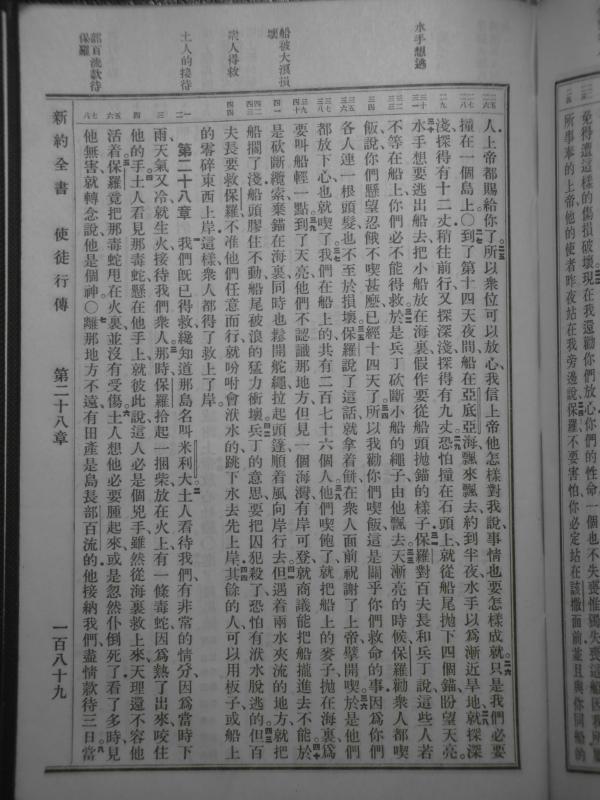 人上帝都賜給你了所以衆位可以放心我信上帝他怎樣對我說事情也要怎樣成就只是我們必要
撞在一個島上○到了第十四天夜間船在亞底亞海飄來飄去約到半夜水手以爲漸近旱地就探深
淺探得有十二丈稍往前行又探深淺探得有九丈恐怕撞在石頭上就從船尾拋下四個錨盼望天亮
水手想要逃出船去把小船放在海裏假作要從船頭拋錨的樣子保羅對百夫長和兵丁說這些人若
不等在船上你們必不能得救於是兵丁砍斷小船的繩子由他飄去天漸亮的時候保羅勸衆人都喫
飯說你們懸望忍餓不喫甚麽已經十四天了所以我勸你們喫飯這是關乎你們救命的事因爲你們
各人連一根頭髮也不至於損壞保羅說了這話就拿着餅在衆人面前祝謝了上帝擘開喫於是他們
都放下心也就喫了我們在船上的共有二百七十六個人他們喫飽了就把船上的麥子拋在海裏爲
要叫船輕一點到了天亮他們不認識那地方但見一個海灣有岸可登就商議能把船攏進去不能於
是砍斷纜索棄錨在海裏同時也鬆開舵繩拉起頭篷順着風向岸行去但遇着兩水夾流的地方就把
船擱了淺船頭膠住不動船尾被浪的猛力衝壞兵丁的意思要把囚犯殺了恐怕有洑水脫逃的但百
夫長要救保羅不准他們任意而行就吩咐會洑水的跳下水去先上岸其餘的人可以用板子或船上
的零碎東西上岸這樣衆人都得了救上了岸
第二十八章 我們旣已得救纔知道那島名叫米利大土人看待我們有非常的情分因爲當時下
雨天氣又冷就生火接待我們衆人那時保羅拾起一捆柴放在火上有一條毒蛇因爲熱了出來咬住
他的手土人看見那毒蛇懸在他手上就彼此說這人必是個兇手雖然從海裏救上來天理還不容他
活着保羅竟把那毒蛇甩在火裏並沒有受傷土人想他必要腫起來或是忽然仆倒死了看了多時見
他無害就轉念說他是個神○離那地方不遠有田產是島長部百流的他接納我們盡情款待三日當
水手想逃
船被大濱損壞
衆人得救
土人的接待
部百流款待保羅
新約全書 使徒行傳 第二十八章 一百八十九
免得遭這樣的傷損破壞現在我還勸你們放心你們的性命一個也不失喪惟獨失喪這船因我所屬
所事奉的上帝他的使者昨夜站在我旁邊說保羅不要害怕你必定站在該撒面前並且與你同船的